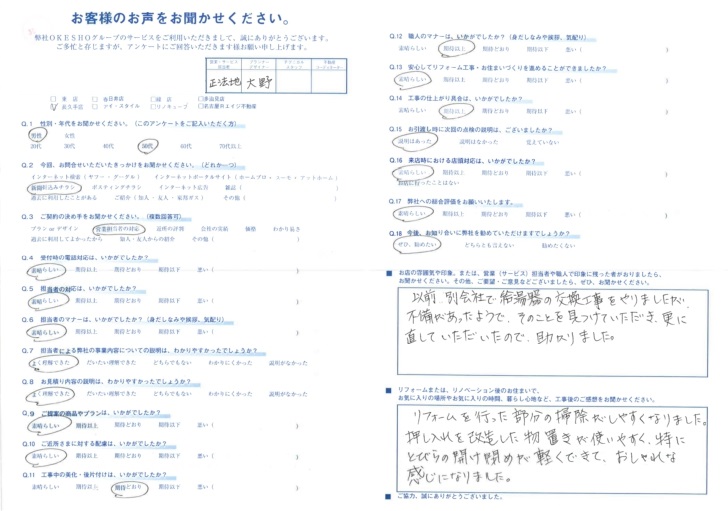 お客様のお声をお聞かせください。
弊社OKESHOグループのサービスをご利用いただきまして、誠にありがとうございます。
ご多忙と存じますが、アンケートにご回答いただきます様お願い申し上げます。
正法地 大野
Q.1 性別・年代をお聞かせください。（このアンケートをご記入いただく方）
男性 女性
20代 30代 40代 50代 60代 70代以上
Q.2 今回、お問合せいただいたきっかけをお聞かせください。（どれか一つ）
新聞折込みチラシ ポスティングチラシ インターネット広告 雑誌（ ）
Q.3 ご契約の決め手をお聞かせください。（複数回答可）
プラン or デザイン 営業担当者の対応 近所の評判 会社の実績 価格 わかり易さ
過去に利用してよかったから 知人・友人からの紹介 その他（ ）
Q.4 受付時の電話対応は、いかがでしたか？
素晴らしい 期待以上 期待どおり 期待以下 悪い（ ）
Q.5 担当者の対応は、いかがでしたか？
素晴らしい 期待以上 期待どおり 期待以下 悪い（ ）
Q.6 担当者のマナーは、いかがでしたか？（身だしなみや挨拶、気配り）
素晴らしい 期待以上 期待どおり 期待以下 悪い（ ）
Q.7 担当者による弊社の事業内容についての説明は、わかりやすかったでしょうか？
よく理解できた だいたい理解できた どちらでもない わかりにくかった 説明がなかった
Q.8 お見積り内容の説明は、わかりやすかったでしょうか？
よく理解できた だいたい理解できた どちらでもない わかりにくかった 説明がなかった
Q.9 ご提案の商品やプランは、いかがでしたか？
素晴らしい 期待以上 期待どおり 期待以下 悪い（ ）
Q.10 ご近所さまに対する配慮は、いかがでしたか？
素晴らしい 期待以上 期待どおり 期待以下 悪い（ ）
Q.11 工事中の美化・後片付けは、いかがでしたか？
素晴らしい 期待以上 期待どおり 期待以下 悪い（ ）
Q.12 職人のマナーは、いかがでしたか？（身だしなみや挨拶、気配り）
素晴らしい 期待以上 期待どおり 期待以下 悪い（ ）
Q.13 安心してリフォーム工事・お住まいづくりを進めることができましたか？
素晴らしい 期待以上 期待どおり 期待以下 悪い（ ）
Q.14 工事の仕上がり具合は、いかがでしたか？
素晴らしい 期待以上 期待どおり 期待以下 悪い（ ）
Q.15 お引渡し時に次回の点検の説明は、ございましたか？
説明はあった 説明はなかった 覚えていない
Q.16 来店時における店頭対応は、いかがでしたか？
素晴らしい 期待以上 期待どおり 期待以下 悪い（ ）
お店に行ったことはない
Q.17 弊社への総合評価をお願いいたします。
素晴らしい 期待以上 期待どおり 期待以下 悪い（ ）
Q.18 今後、お知り合いに弊社を勧めていただけますでしょうか？
ぜひ、勧めたい どちらとも言えない 勧めたくない
■ お店の雰囲気や印象、または、営業（サービス）担当者や職人で印象に残った者がおりましたら、
お聞かせください。その他、ご要望・ご意見などございましたら、ぜひ、お聞かせください。
以前、別会社で給湯器の交換工事をやりましたが、
不備があったようで、そのことを見つけていただき、更に
直していただいたので、助かりました。
■ リフォームまたは、リノベーション後のお住まいで、
お気に入りの場所やお気に入りの時間、暮らし心地など、工事後のご感想をお聞かせください。
リフォームを行った部分の掃除がしやすくなりました。
押し入れを改造した物置きが使いやすく、特に
とびらの開け閉めが軽くできて、おしゃれな
感じになりました。
■ ご協力、誠にありがとうございました。